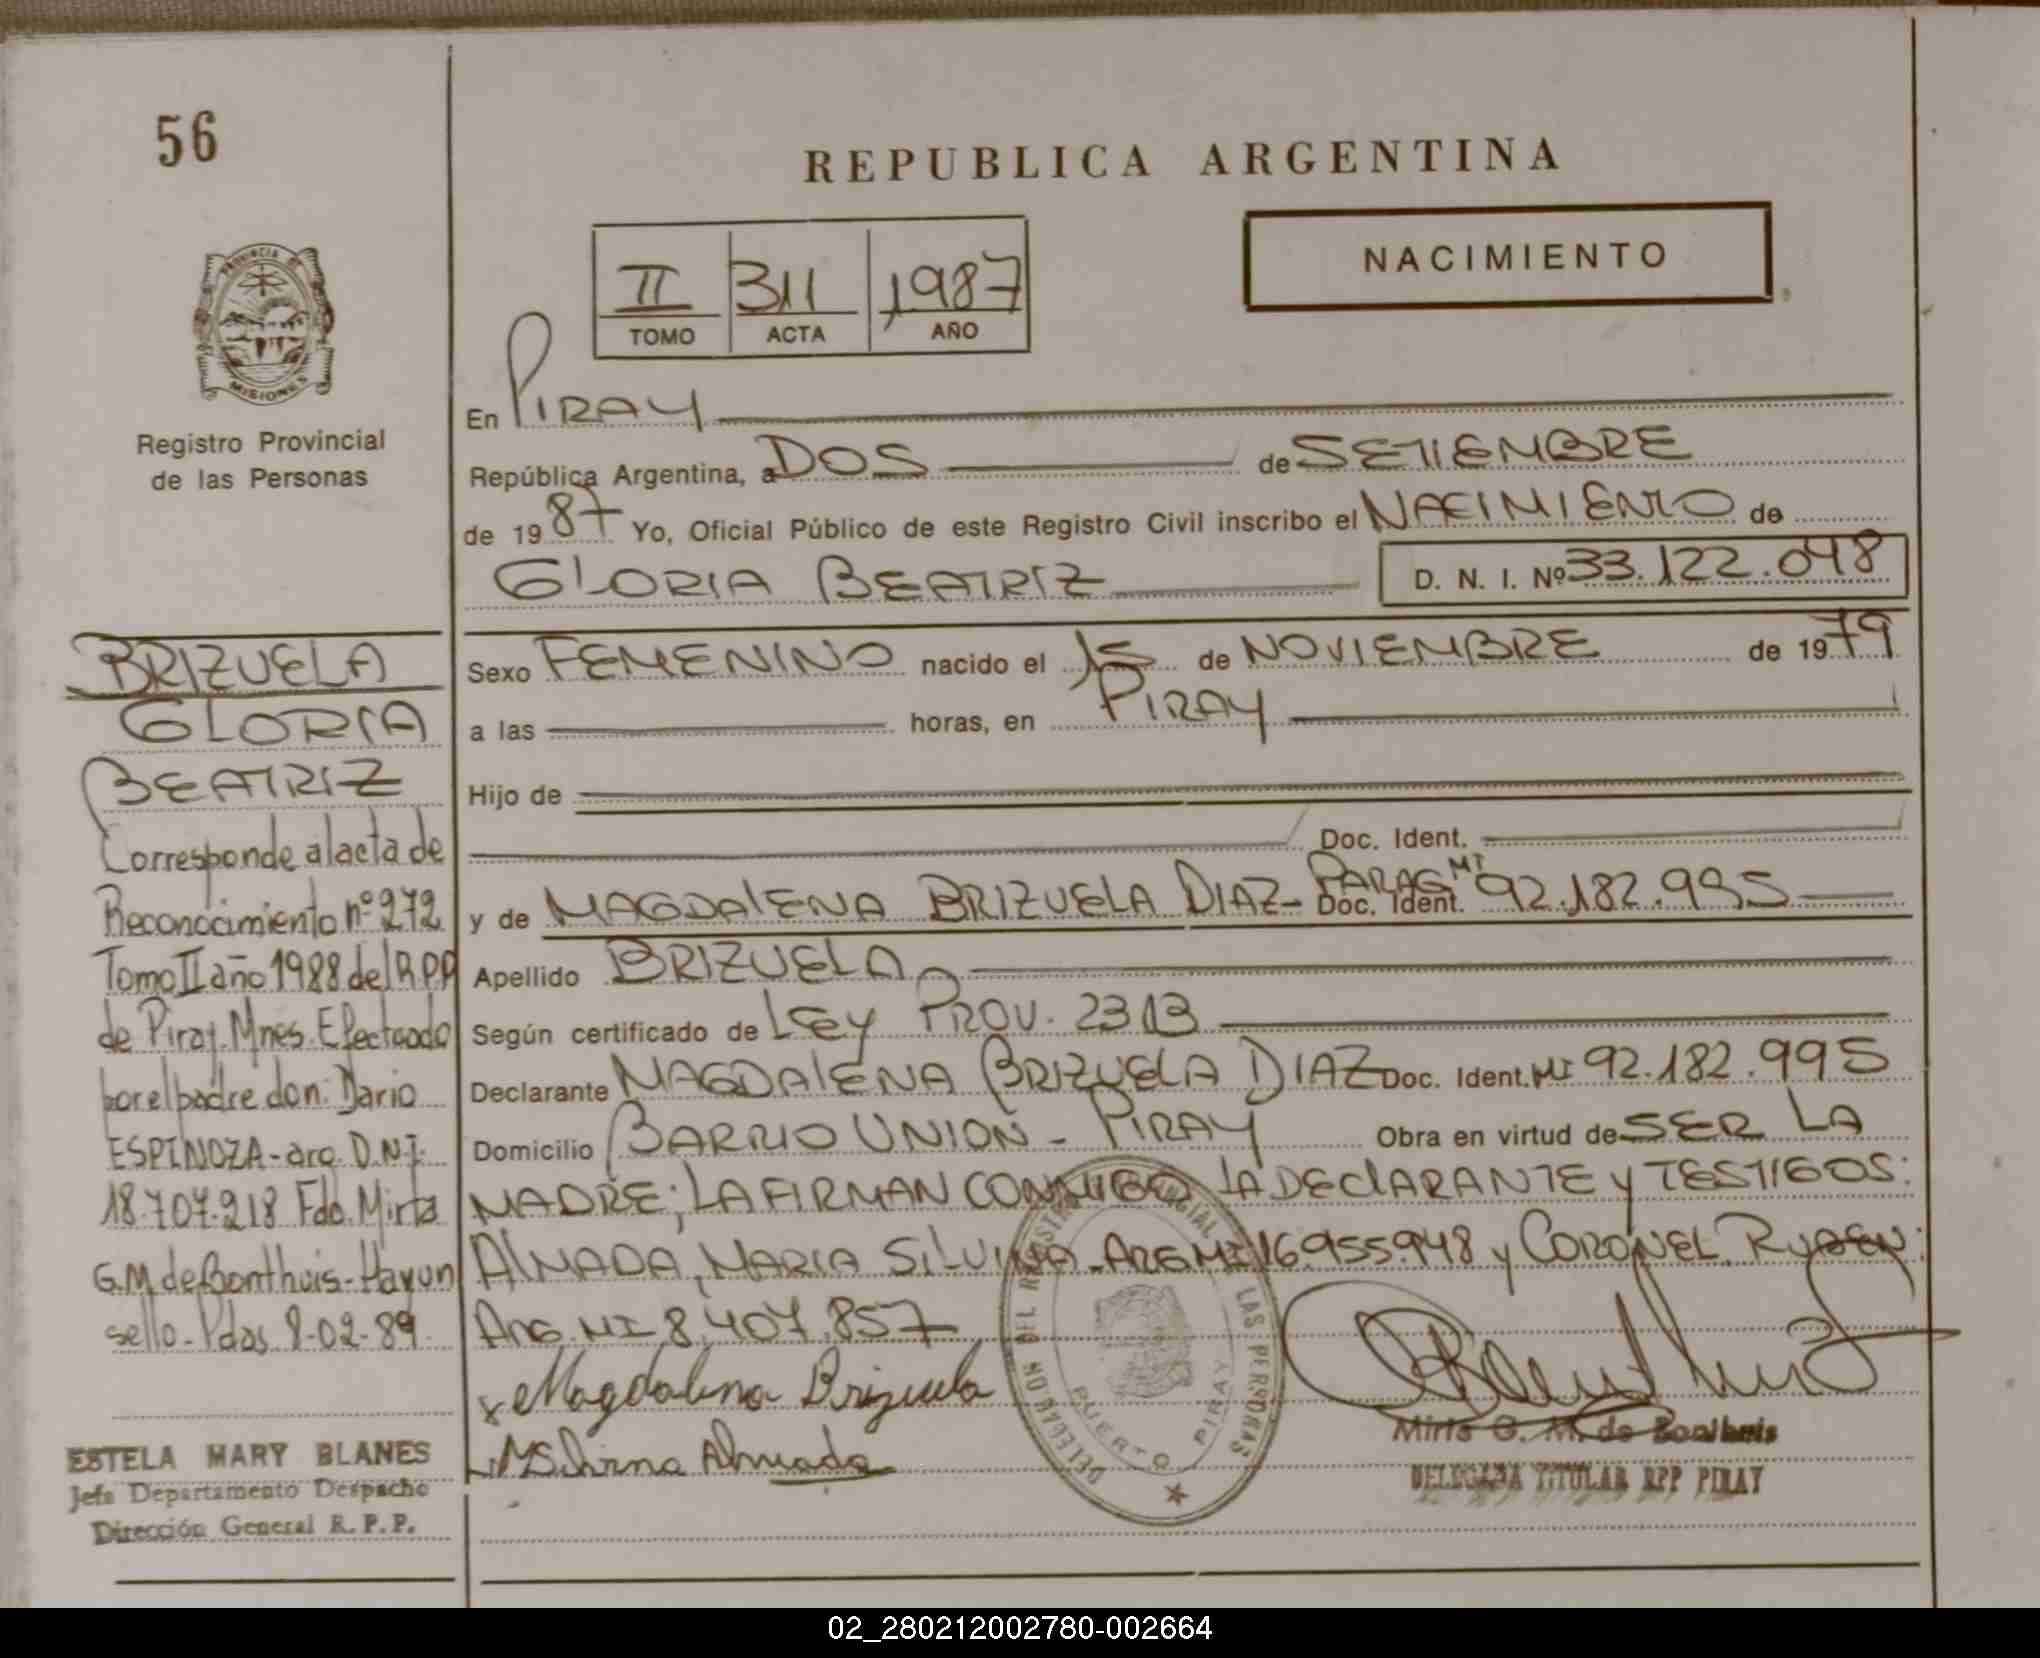 56
REPUBLICA ARGENTINA
NACIMIENTO
II 311 1987
TOMO ACTA AÑO
PROVINCIA DE
MISIONES
Registro Provincial
de las Personas
En PIRAY
República Argentina, a DOS de SETIEMBRE
de 1987 Yo, Oficial Público de este Registro Civil inscribo el NACIMIENTO de
GLORIA BEATRIZ D. N. I. Nº 33.122.048
Sexo FEMENINO nacido el 15 de NOVIEMBRE de 1979
a las horas, en PIRAY
Hijo de
Doc. Ident.
y de MAGDALENA BRIZUELA DIAZ- PARAG MI Doc. Ident. 92.182.995
Apellido BRIZUELA
Según certificado de LEY PROV. 2313
Declarante MAGDALENA BRIZUELA DIAZ Doc. Ident. MI 92.182.995
Domicilio BARRIO UNION - PIRAY Obra en virtud de SER LA
MADRE; LA FIRMAN CONMIGO LA DECLARANTE Y TESTIGOS:
ALMADA, MARIA SILVINA - ARG MI 16.955.948 y CORONEL RUBEN:
ARG. MI 8.407.857
Magdalena Brizuela
Almada
BRIZUELA
GLORIA
BEATRIZ
Corresponde al acta de
Reconocimiento nº 272
Tomo II año 1988 del R.P.P
de Piray. Mnes. Efectuado
por el padre don: Dario
ESPINOZA - arg. D.N.I.
18.707.218 Fdo. Mirta
G.M. de Bonthuis - Hay un
sello - Pdas. 8-02-89.
ESTELA MARY BLANES
Jefe Departamento Despacho
Dirección General R.P.P.
DELEGACION DEL REGISTRO PROVINCIAL DE LAS PERSONAS
PUERTO PIRAY
Mirta G. M. de Bonthuis
DELEGADA TITULAR RPP PIRAY
02_280212002780-002664